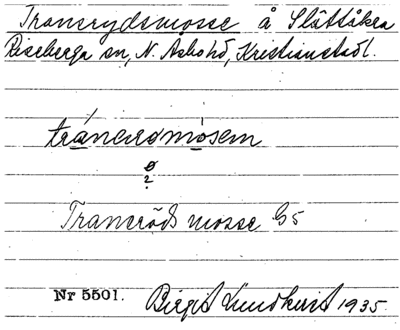 Tranerydsmosse å Slättåkra
Riseberga sn, N. Åsbohd, Kristianstadl.
tránerømósem
ø
2
Traneröds mosse G5
Nr 5501. Birgit Lundkvist 1935.